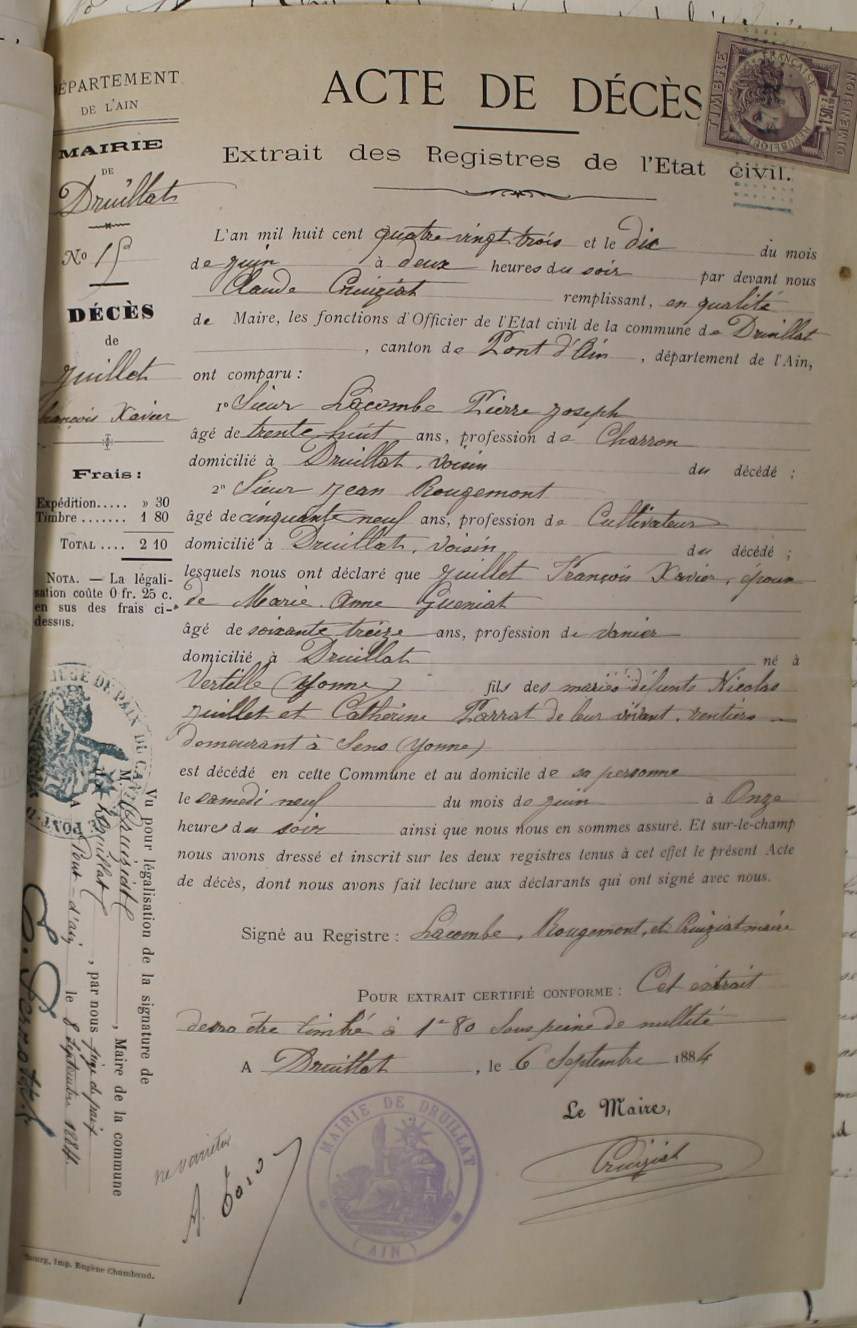 DÉPARTEMENT
DE L'AIN
MAIRIE
DE
Druillat
No 15
DÉCÈS
de
Juillet
François Xavier
Frais :
Expédition..... » 30
Timbre ....... 1 80
TOTAL .... 2 10
NOTA. — La légali-
sation coûte 0 fr. 25 c.
en sus des frais ci-
dessus.
ACTE DE DÉCÈS
TIMBRE
RÉPUBLIQUE FRANÇAISE
DIMENSION
Extrait des Registres de l'Etat civil.
L'an mil huit cent quatre vingt trois et le dix du mois
de juin à deux heures du soir par devant nous
Claude Cruiziat remplissant, en qualité
de Maire, les fonctions d'Officier de l'Etat civil de la commune de Druillat
, canton de Pont d'Ain, département de l'Ain,
ont comparu :
1o Sieur Lacombe Pierre Joseph
âgé de trente huit ans, profession de Charron
domicilié à Druillat, voisin du décédé ;
2o Sieur Jean Rougemont
âgé de cinquante neuf ans, profession de Cultivateur
domicilié à Druillat, voisin du décédé ;
lesquels nous ont déclaré que Juillet François Xavier, époux
de Marie Anne Gueniat
âgé de soixante treize ans, profession de vanier
domicilié à Druillat né à
Vertille (Yonne) fils des mariés défunts Nicolas
Juillet et Catherine Parrat de leur vivant rentiers
demeurant à Sens (Yonne)
est décédé en cette Commune et au domicile de sa personne
le samedi neuf du mois de juin à Onze
heures du soir ainsi que nous nous en sommes assuré. Et sur-le-champ
nous avons dressé et inscrit sur les deux registres tenus à cet effet le présent Acte
de décès, dont nous avons fait lecture aux déclarants qui ont signé avec nous.
Signé au Registre : Lacombe, Rougemont, et Cruiziat maire
POUR EXTRAIT CERTIFIÉ CONFORME : Cet extrait
devra être timbré à 1f 80 sous peine de nullité
A Druillat, le 6 Septembre 1884
Le Maire,
Cruiziat
MAIRIE DE DRUILLAT
(AIN)
ne varietur
Vu pour légalisation de la signature de
M. Cruiziat, Maire de la commune
de Druillat, par nous juge de paix
A Pont-d'ain le 8 Septembre 1884.
Bourg, Imp. Eugène Chambaud.